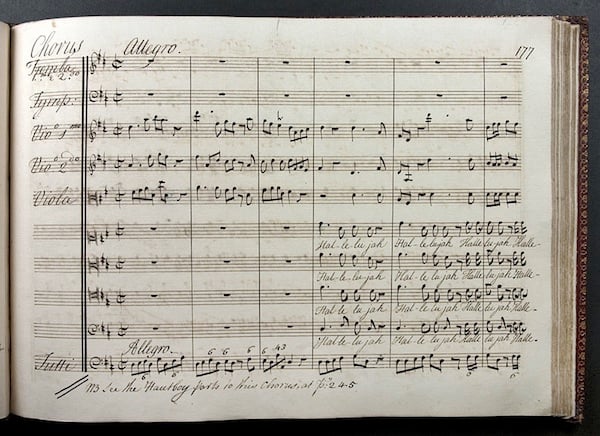 Chorus Allegro. 177
Tromba
1 & 2do
Tymp:
Vio.o 1mo
Vio.o 2do
Viola
Hal-le lu jah Hal-le lujah Halle lu jah Halle-
Hal-le lu jah Hal-le lujah Halle lu jah Halle-
Hal-le lu jah Hal-le lujah Halle lu jah Halle-
Hal-le lu jah Hal-le lujah Halle lu jah Halle-
Allegro. 6 6 6 6 43
Tutti
6 6
NB See the Hautboy parts to this Chorus, at p. 245